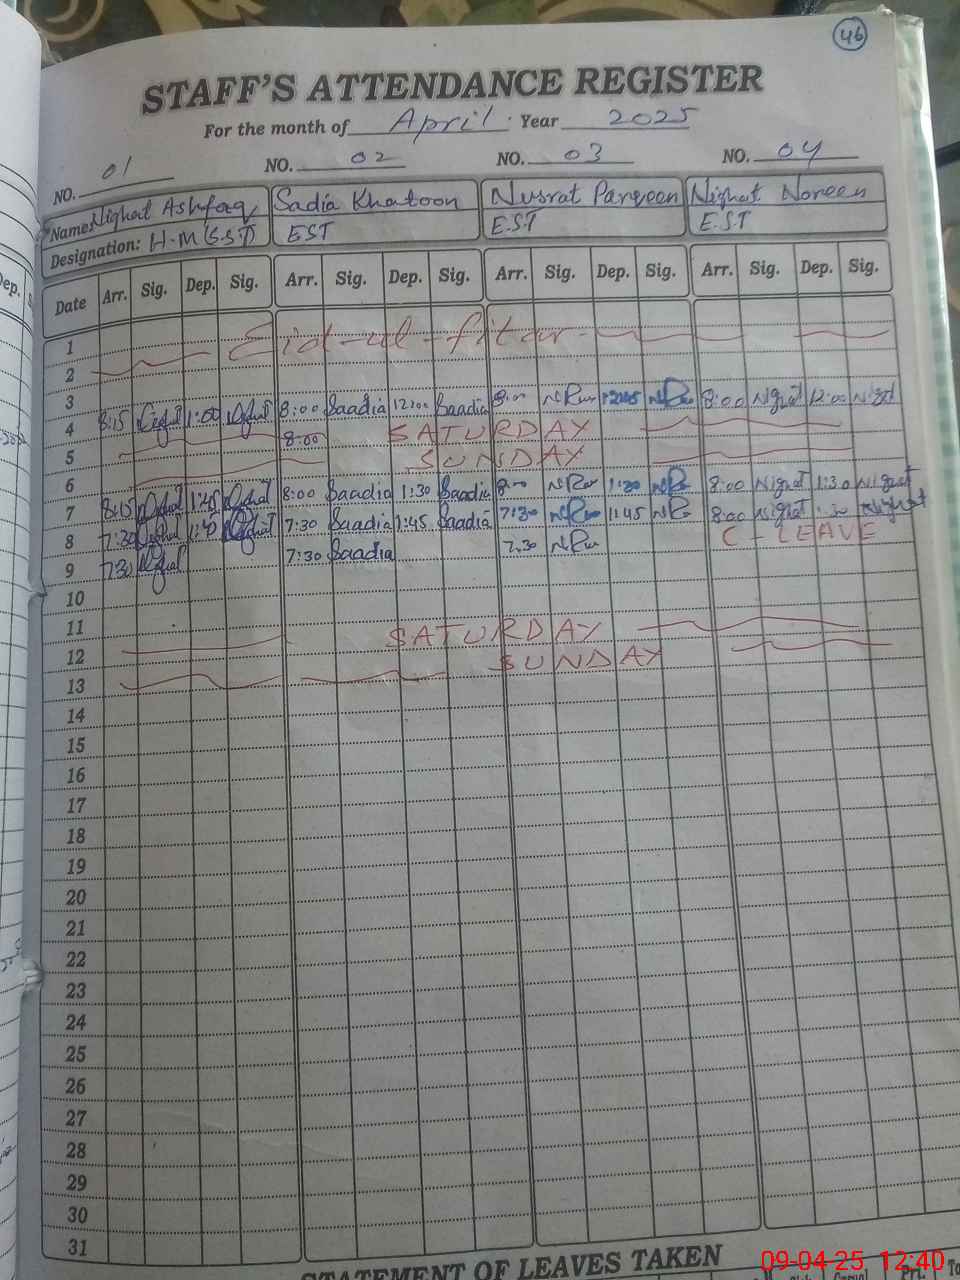 46
STAFF'S ATTENDANCE REGISTER
For the month of April. Year 2025
NO. 01 NO. 02 NO. 03 NO. 04
Name: Nighat Ashfaq Sadia Khatoon Nusrat Parveen Nighat Noreen
Designation: H-M (S.S.T) EST E.ST E.ST
Date Arr. Sig. Dep. Sig. Arr. Sig. Dep. Sig. Arr. Sig. Dep. Sig. Arr. Sig. Dep. Sig.
1 Eid-ul-fitar
2
3 8:15 1:00 8:00 Saadia 12:00 Saadia 8:00 12:45 8:00 Nighat 12:00 Nighat
4 8:00 SATURDAY
5 SUNDAY
6 8:15 1:45 8:00 Saadia 1:30 Saadia 8:00 1:30 8:00 Nighat 1:30 Nighat
7 7:30 7:30 Saadia 1:45 Saadia 7:30 1:45 8:00 Nighat 1:30 Nighat
8 7:30 7:30 Saadia 7.30 C-LEAVE
9
10
11 SATURDAY
12 SUNDAY
13
14
15
16
17
18
19
20
21
22
23
24
25
26
27
28
29
30
31
STATEMENT OF LEAVES TAKEN
09-04-25, 12:40